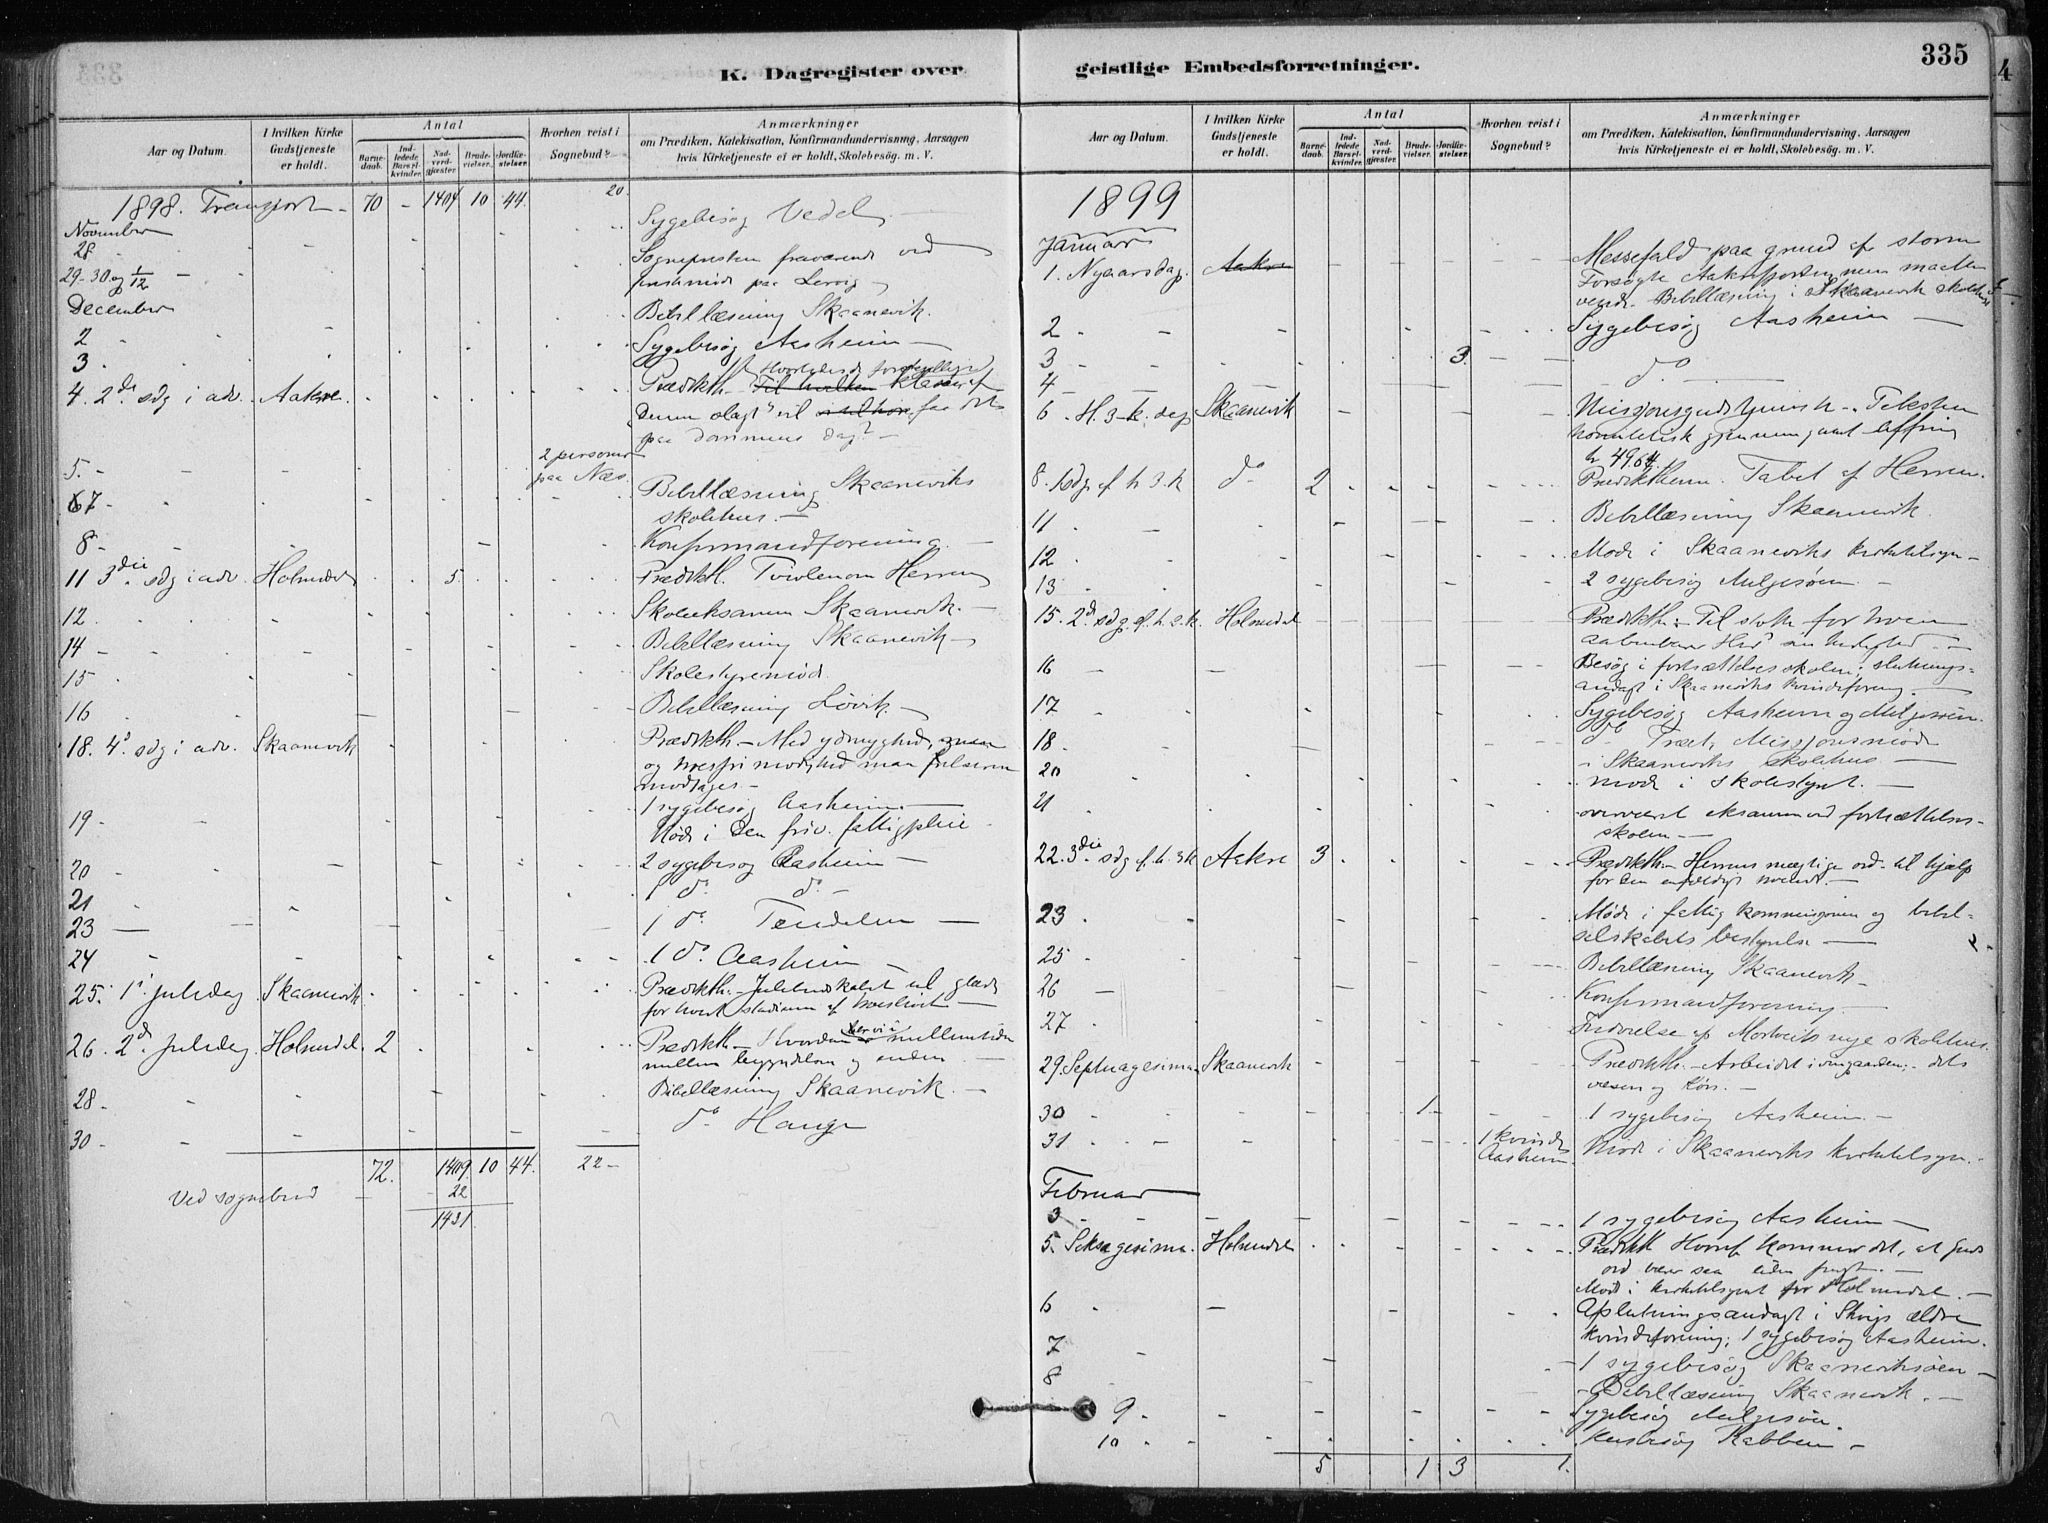 K. Dagregister over geistlige Embedsforretninger.
335
Aar og Datum.
I hvilken Kirke Gudstjeneste er holdt.
Antal
Barnedaab.
Indledede Barselkvinder.
Nadverdgjæster.
Brudevielser.
Jordfæstelser.
Hvorhen reist i Sognebud?
Anmærkninger
om Prædiken, Katekisation, Konfirmandundervisning, Aarsagen
hvis Kirketjeneste ei er holdt, Skolebesög. m. V.
1898. Transport - 70 - 1404 10 44. 20.
November
28 Sygebesög Vedel
29-30 og 1/12 Sognepresten fraværende ved
paa Lervig
December
2 Bibellæsning Skaanevik.
3. Sygebesög Aasheim -
4. 2den sdg i adv. Aakre. Prædikth.
Denne slagt vil faa det
paa dommens dag? -
5. - 2 personer
paa Næs.
67 - Bibellæsning Skaaneviks
skolehus. -
8 - Konfirmandforening. -
11 3die sdg i adv. Holmedal 5. Prædikth. Tvivlen om Herren
12. Skoleeksamen Skaanevik. -
14 - Bibellæsning Skaanevik -
15 Skolestyremöde.
16 Bibellæsning -
18. 4de sdg i adv. Skaanevik Prædikth. - Med ydmyghed,
og man frelseren
modtages -
19 - 1 sygebesög Aasheim. -
Möde i Den friv. fattigpleie -
20 - 2 sygebesög Aasheim -
21 1 do do -
23 - 1 do Tendelen -
24 - 1 do Aasheim -
25. 1ste juledag Skaanevik Prædikth. - Julebudskabet til glæde
for hvert stadium af -
26. 2den juledag Holmedal. 2 Prædikth. - Hvordan mellemtiden
mellem begyndelsen og enden. -
28 - Bibellæsning Skaanevik. -
30 - do Hauge
72. 1409. 10 44. 22 -
Ved sognebud - 22
1431
Aar og Datum.
I hvilken Kirke Gudstjeneste er holdt.
Antal
Barnedaab.
Indledede Barselkvinder.
Nadverdgjæster.
Brudevielser.
Jordfæstelser.
Hvorhen reist i Sognebud?
Anmærkninger
om Prædiken, Katekisation, Konfirmandundervisning, Aarsagen
hvis Kirketjeneste ei er holdt, Skolebesög. m. V.
1899
Januar
1. Nyaarsdag. Aakre Messefald paa grund af storm
Forsögte Aakrefjorden men maatte
vende. Bibellæsning i Skaanevik skolehus
2 Sygebesög Aasheim -
3 3. do -
4 -
6. H. 3-k. dag Skaanevik Missjonsgudstjeneste. Teksten
homiletisk gjennemgaaet
8. 1 sdg. ef. h. 3. k do 2 Prædikthem. Tabet af Herren.
11 Bibellæsning Skaanevik.
12 Möde i Skaaneviks kirketilsyn -
13 2 sygebesög Milgesöen -
15. 2den sdg. ef. h. 3. k. Holmedal Prædikth: Til stötte for
aabenbarer Herren sin herlighed. -
16 Besög i fortsættelsesskolen; slutningsandagt
i Skaaneviks kvindeforening -
17 Sygebesög Aasheim og Milgesöen.
18 do Træet, Missjonsmöde
i Skaaneviks skolehus -
20 Möde i skolestyret. -
21 overværet eksamen ved fortsættelsesskolen
-
22. 3die sdg ef. h. 3 k Aakre 3 Prædikth. - Herrens mægtige ord til hjælp
for den -
23 Möde i fattigkommissjonen og bibelselskabets
bestyrelse -
25 Bibellæsning Skaanevik -
26 Konfirmandforening. -
27 Indvielse af nye skolehus.
29. Septuagesima Skaanevik Prædikth. - Arbeidet i vingaarden; dets
væsen og lön. -
30 1 1 sygebesög Aasheim. -
31 1 kvinde
Aasheim. Möde i Skaaneviks kirketilsyn. -
Februar
3 1 sygebesög Aasheim -
5. Seksagesima. Holmedal Prædikth Hvoraf kommer det, at Guds
ord bærer saa liden frugt. -
6 Möde i kirketilsynet for Holmedal. -
7 Afslutningsandagt i ældre
kvindeforening; 1 sygebesög Aasheim.
8 1 sygebesög Skaaneviksöen -
- Bibellæsning Skaanevik. -
9 - Sygebesög Milgesöen.
10 Husbesög -
5 1 3 1.